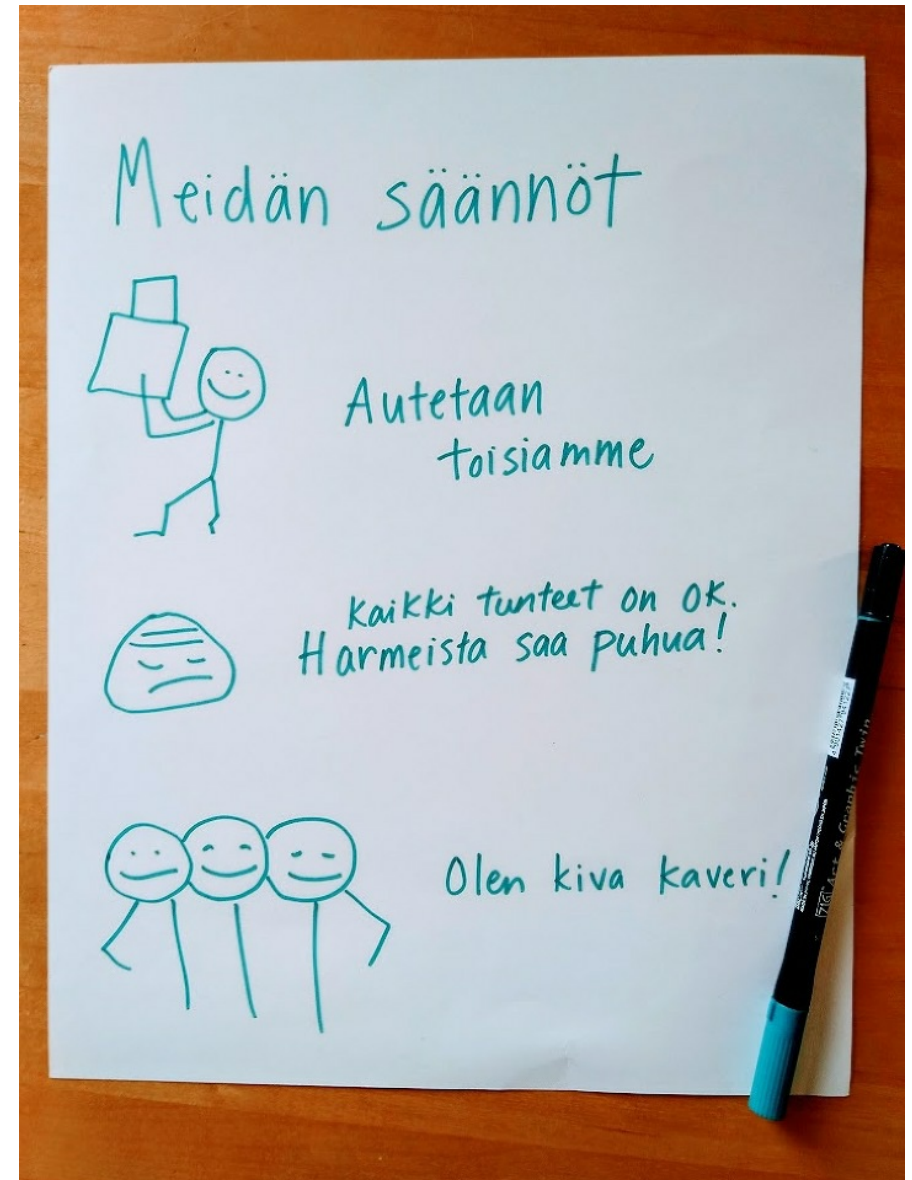 Meidän säännöt
Autetaan
toisiamme
Kaikki tunteet on OK.
Harmeista saa puhua!
Olen kiva kaveri!
ZIG Art & Graphic Twin